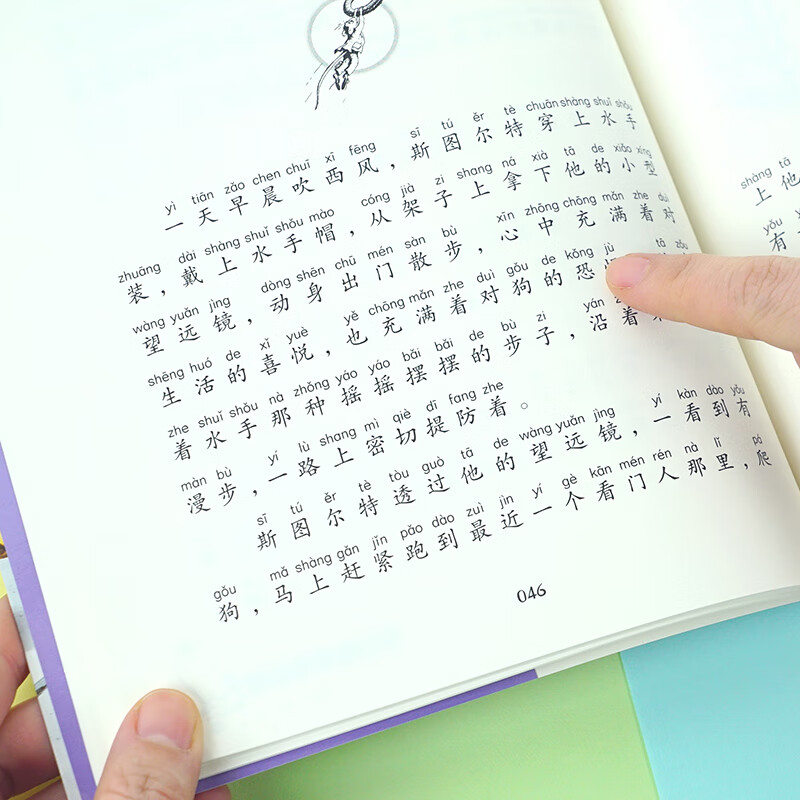 yì tiān zǎo chen chuī xī fēng sī tú ěr tè chuān shàng shuǐ shǒu
一天早晨吹西风，斯图尔特穿上水手
zhuāng dài shàng shuǐ shǒu mào cóng jià zi shang ná xià tā de xiǎo xíng
装，戴上水手帽，从架子上拿下他的小型
wàng yuǎn jìng dòng shēn chū mén sàn bù xīn zhōng chōng mǎn zhe duì
望远镜，动身出门散步，心中充满着对
shēng huó de xǐ yuè yě chōng mǎn zhe duì gǒu de kǒng jù tā
生活的喜悦，也充满着对狗的恐
zhe shuǐ shǒu nà zhǒng yáo yáo bǎi bǎi de bù zi yán
着水手那种摇摇摆摆的步子，沿着
màn bù yí lù shang mì qiè dī fang zhe
漫步，一路上密切提防着。
sī tú ěr tè tòu guò tā de wàng yuǎn jìng yí kàn dào yǒu
斯图尔特透过他的望远镜，一看到有
gǒu mǎ shàng gǎn jǐn pǎo dào zuì jìn yí gè kān mén rén nà lǐ pá
狗，马上赶紧跑到最近一个看门人那里，爬
046
shàng tā
上他
yǒu
有